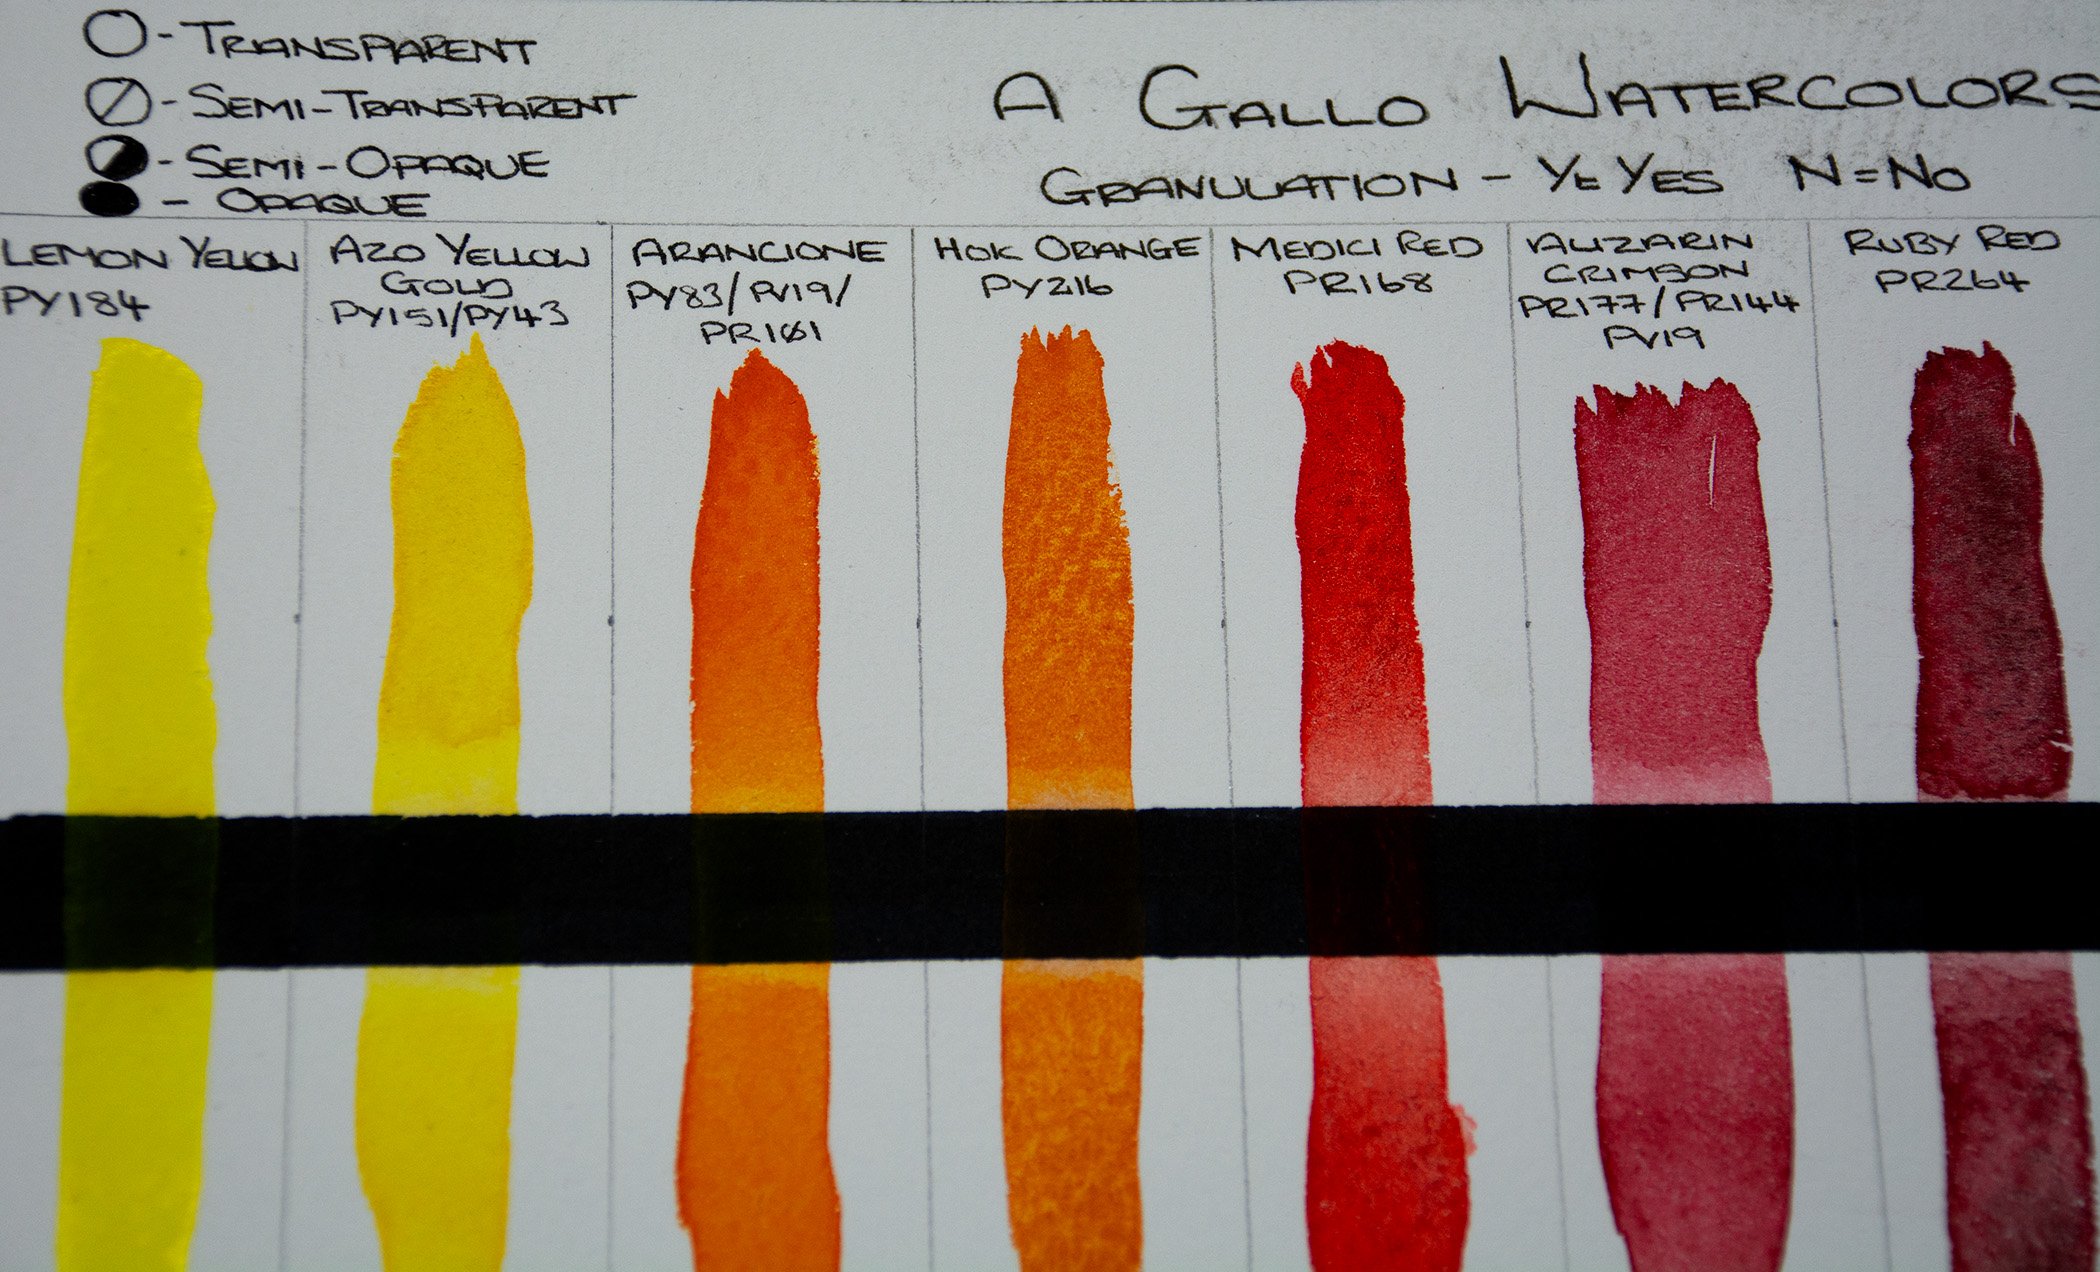 - TRANSPARENT
- SEMI-TRANSPARENT
- SEMI-OPAQUE
- OPAQUE
A GALLO WATERCOLORS
GRANULATION - Y= YES N=NO
LEMON YELLOW
PY184
AZO YELLOW
GOLD
PY151/PY43
ARANCIONE
PY83/PV19/
PR101
HOK ORANGE
PY216
MEDICI RED
PR168
ALIZARIN
CRIMSON
PR177/PR144
PV19
RUBY RED
PR264